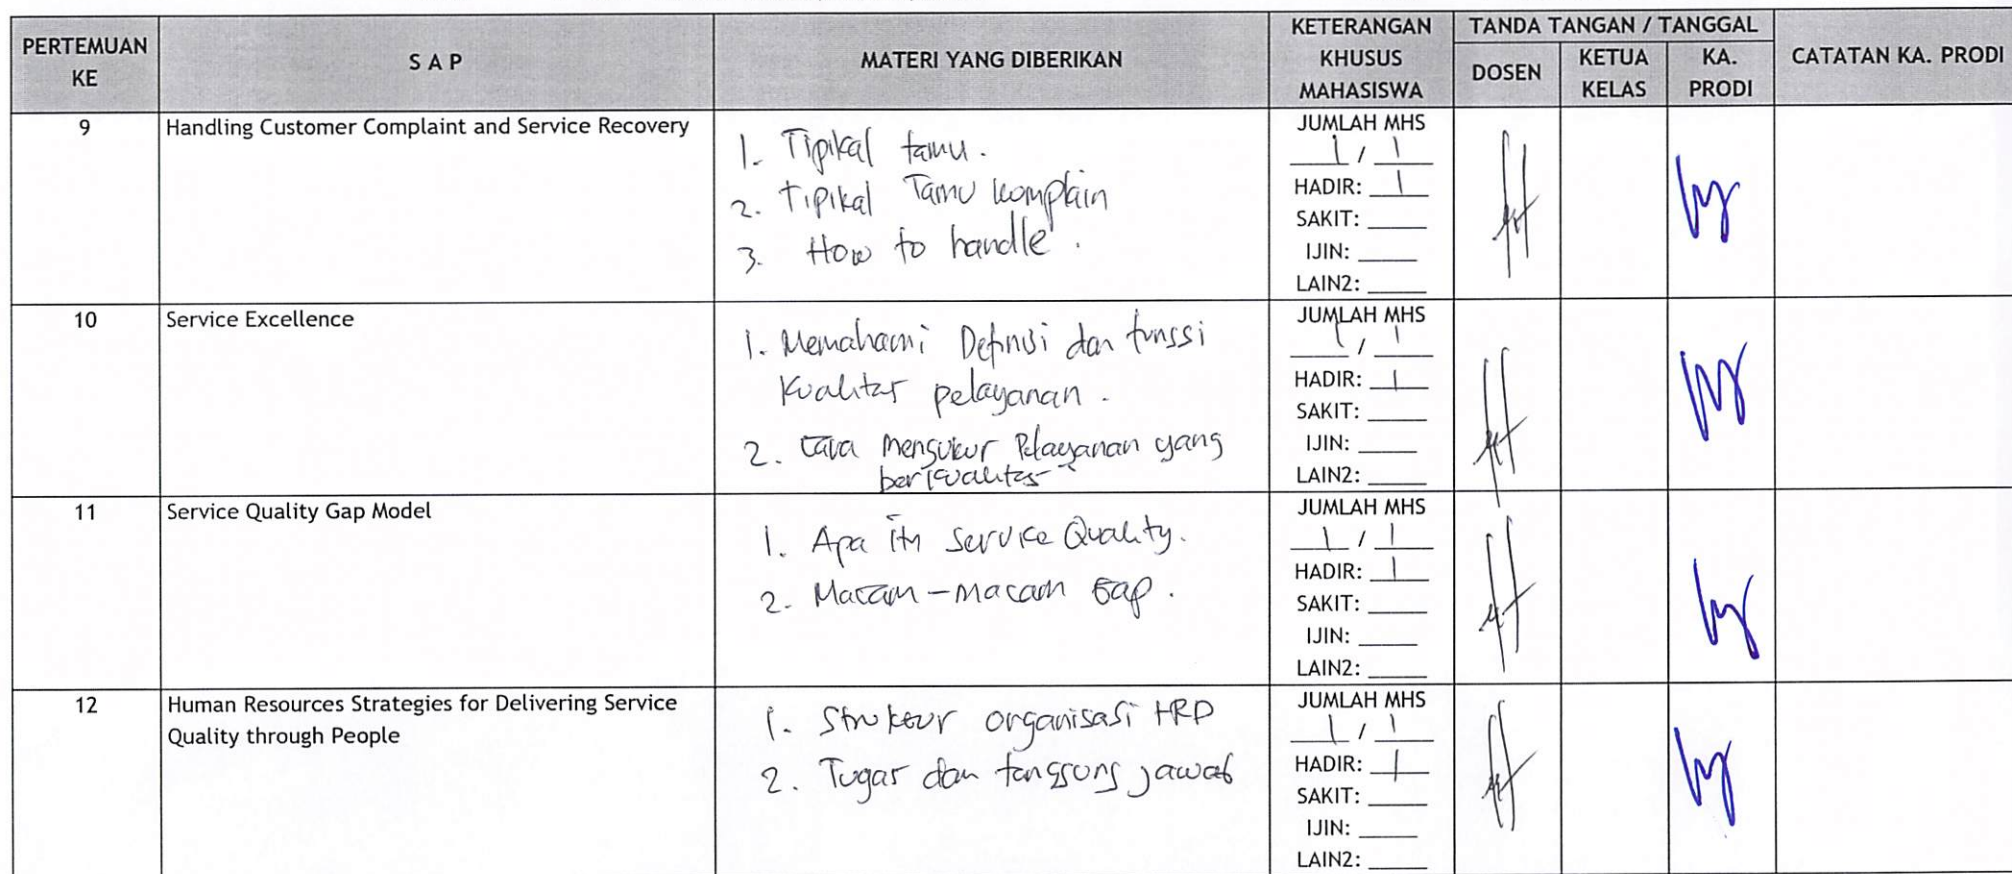 PERTEMUAN KE
S A P
MATERI YANG DIBERIKAN
KETERANGAN KHUSUS MAHASISWA
TANDA TANGAN / TANGGAL
DOSEN
KETUA KELAS
KA. PRODI
CATATAN KA. PRODI
9
Handling Customer Complaint and Service Recovery
1. Tipikal tamu.
2. Tipikal Tamu komplain
3. How to handle.
JUMLAH MHS
1 / 1
HADIR: 1
SAKIT:
IJIN:
LAIN2:
10
Service Excellence
1. Memahami Definisi dan fungsi
kualitas pelayanan.
2. Cara mengukur Pelayanan yang
berkualitas
JUMLAH MHS
1 / 1
HADIR: 1
SAKIT:
IJIN:
LAIN2:
11
Service Quality Gap Model
1. Apa itu Service Quality.
2. Macam-macam Gap.
JUMLAH MHS
1 / 1
HADIR: 1
SAKIT:
IJIN:
LAIN2:
12
Human Resources Strategies for Delivering Service
Quality through People
1. Struktur organisasi HRD
2. Tugas dan tanggung jawab
JUMLAH MHS
1 / 1
HADIR: 1
SAKIT:
IJIN:
LAIN2: